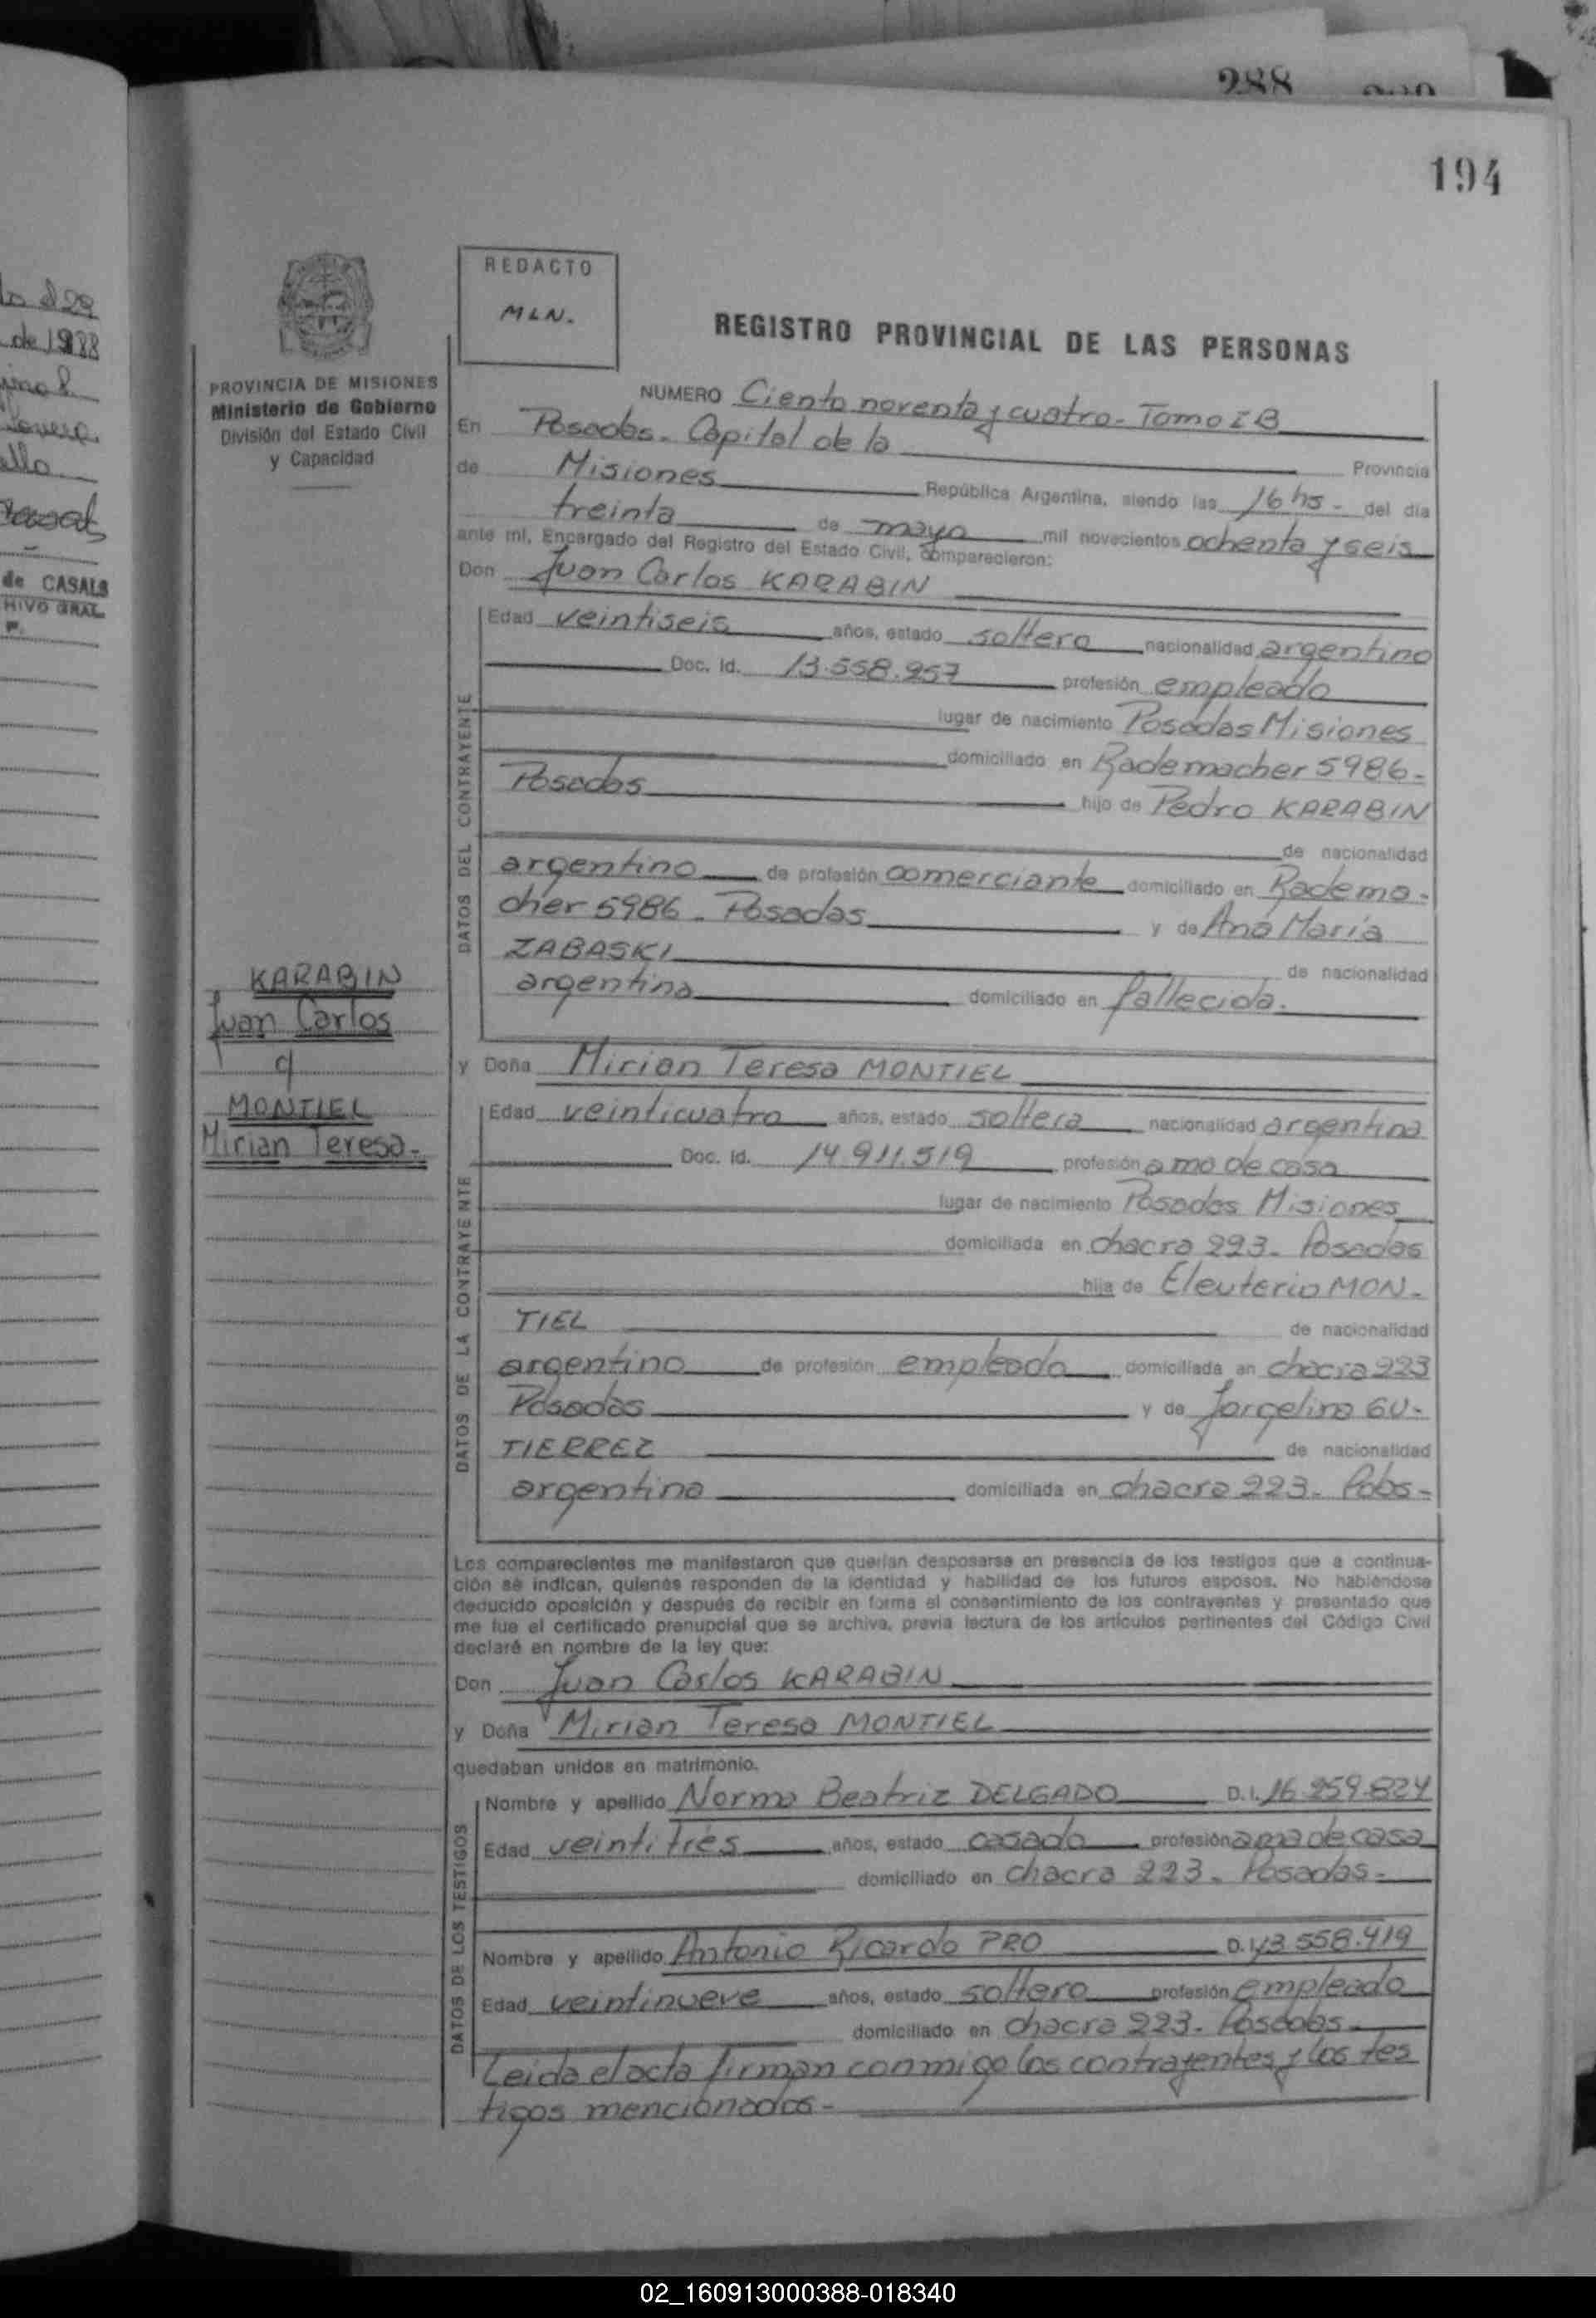 288
194
lo el 29
de 1988
de CASALS
HIVO GRAL
REDACTO
MLN.
REGISTRO PROVINCIAL DE LAS PERSONAS
PROVINCIA DE MISIONES
Ministerio de Gobierno
División del Estado Civil
y Capacidad
NUMERO Ciento noventa y cuatro - Tomo I B
En Posadas - Capital de la Provincia
de Misiones República Argentina, siendo las 16 hs - del día
treinta de mayo mil novecientos ochenta y seis
ante mí, Encargado del Registro del Estado Civil, comparecieron:
Don Juan Carlos KARABIN
DATOS DEL CONTRAYENTE
Edad veintiseis años, estado soltero nacionalidad argentino
Doc. Id. 13.558.957 profesión empleado
lugar de nacimiento Posadas Misiones
domiciliado en Rademacher 5986 -
Posadas hijo de Pedro KARABIN
de nacionalidad
argentino de profesión comerciante domiciliado en Radema -
cher 5986 - Posadas y de Ana María
ZABASKI de nacionalidad
argentina domiciliado en fallecida.
KARABIN
Juan Carlos
c/
MONTIEL
Mirian Teresa -
y Doña Mirian Teresa MONTIEL
DATOS DE LA CONTRAYENTE
Edad veinticuatro años, estado soltera nacionalidad argentina
Doc. Id. 14.911.519 profesión ama de casa
lugar de nacimiento Posadas Misiones
domiciliada en chacra 223 - Posadas
hija de Eleuterio MON -
TIEL de nacionalidad
argentino de profesión empleado domiciliada en chacra 223
Posadas y de Jorgelina GU -
TIERREZ de nacionalidad
argentina domiciliada en chacra 223 - Pdas -
Los comparecientes me manifestaron que querían desposarse en presencia de los testigos que a continua-
ción se indican, quienes responden de la identidad y habilidad de los futuros esposos. No habiéndose
deducido oposición y después de recibir en forma el consentimiento de los contrayentes y presentado que
me fue el certificado prenupcial que se archiva, previa lectura de los artículos pertinentes del Código Civil
declaré en nombre de la ley que:
Don Juan Carlos KARABIN
y Doña Mirian Teresa MONTIEL
quedaban unidos en matrimonio.
DATOS DE LOS TESTIGOS
Nombre y apellido Norma Beatriz DELGADO D.I. 16.259.824
Edad veintitrés años, estado casada profesión ama de casa
domiciliado en chacra 223 - Posadas -
Nombre y apellido Antonio Ricardo PRO D.I. 13.558.419
Edad veintinueve años, estado soltero profesión empleado
domiciliado en chacra 223 - Posadas -
Leída el acta firman conmigo los contrayentes y los tes
tigos mencionados -
02_160913000388-018340